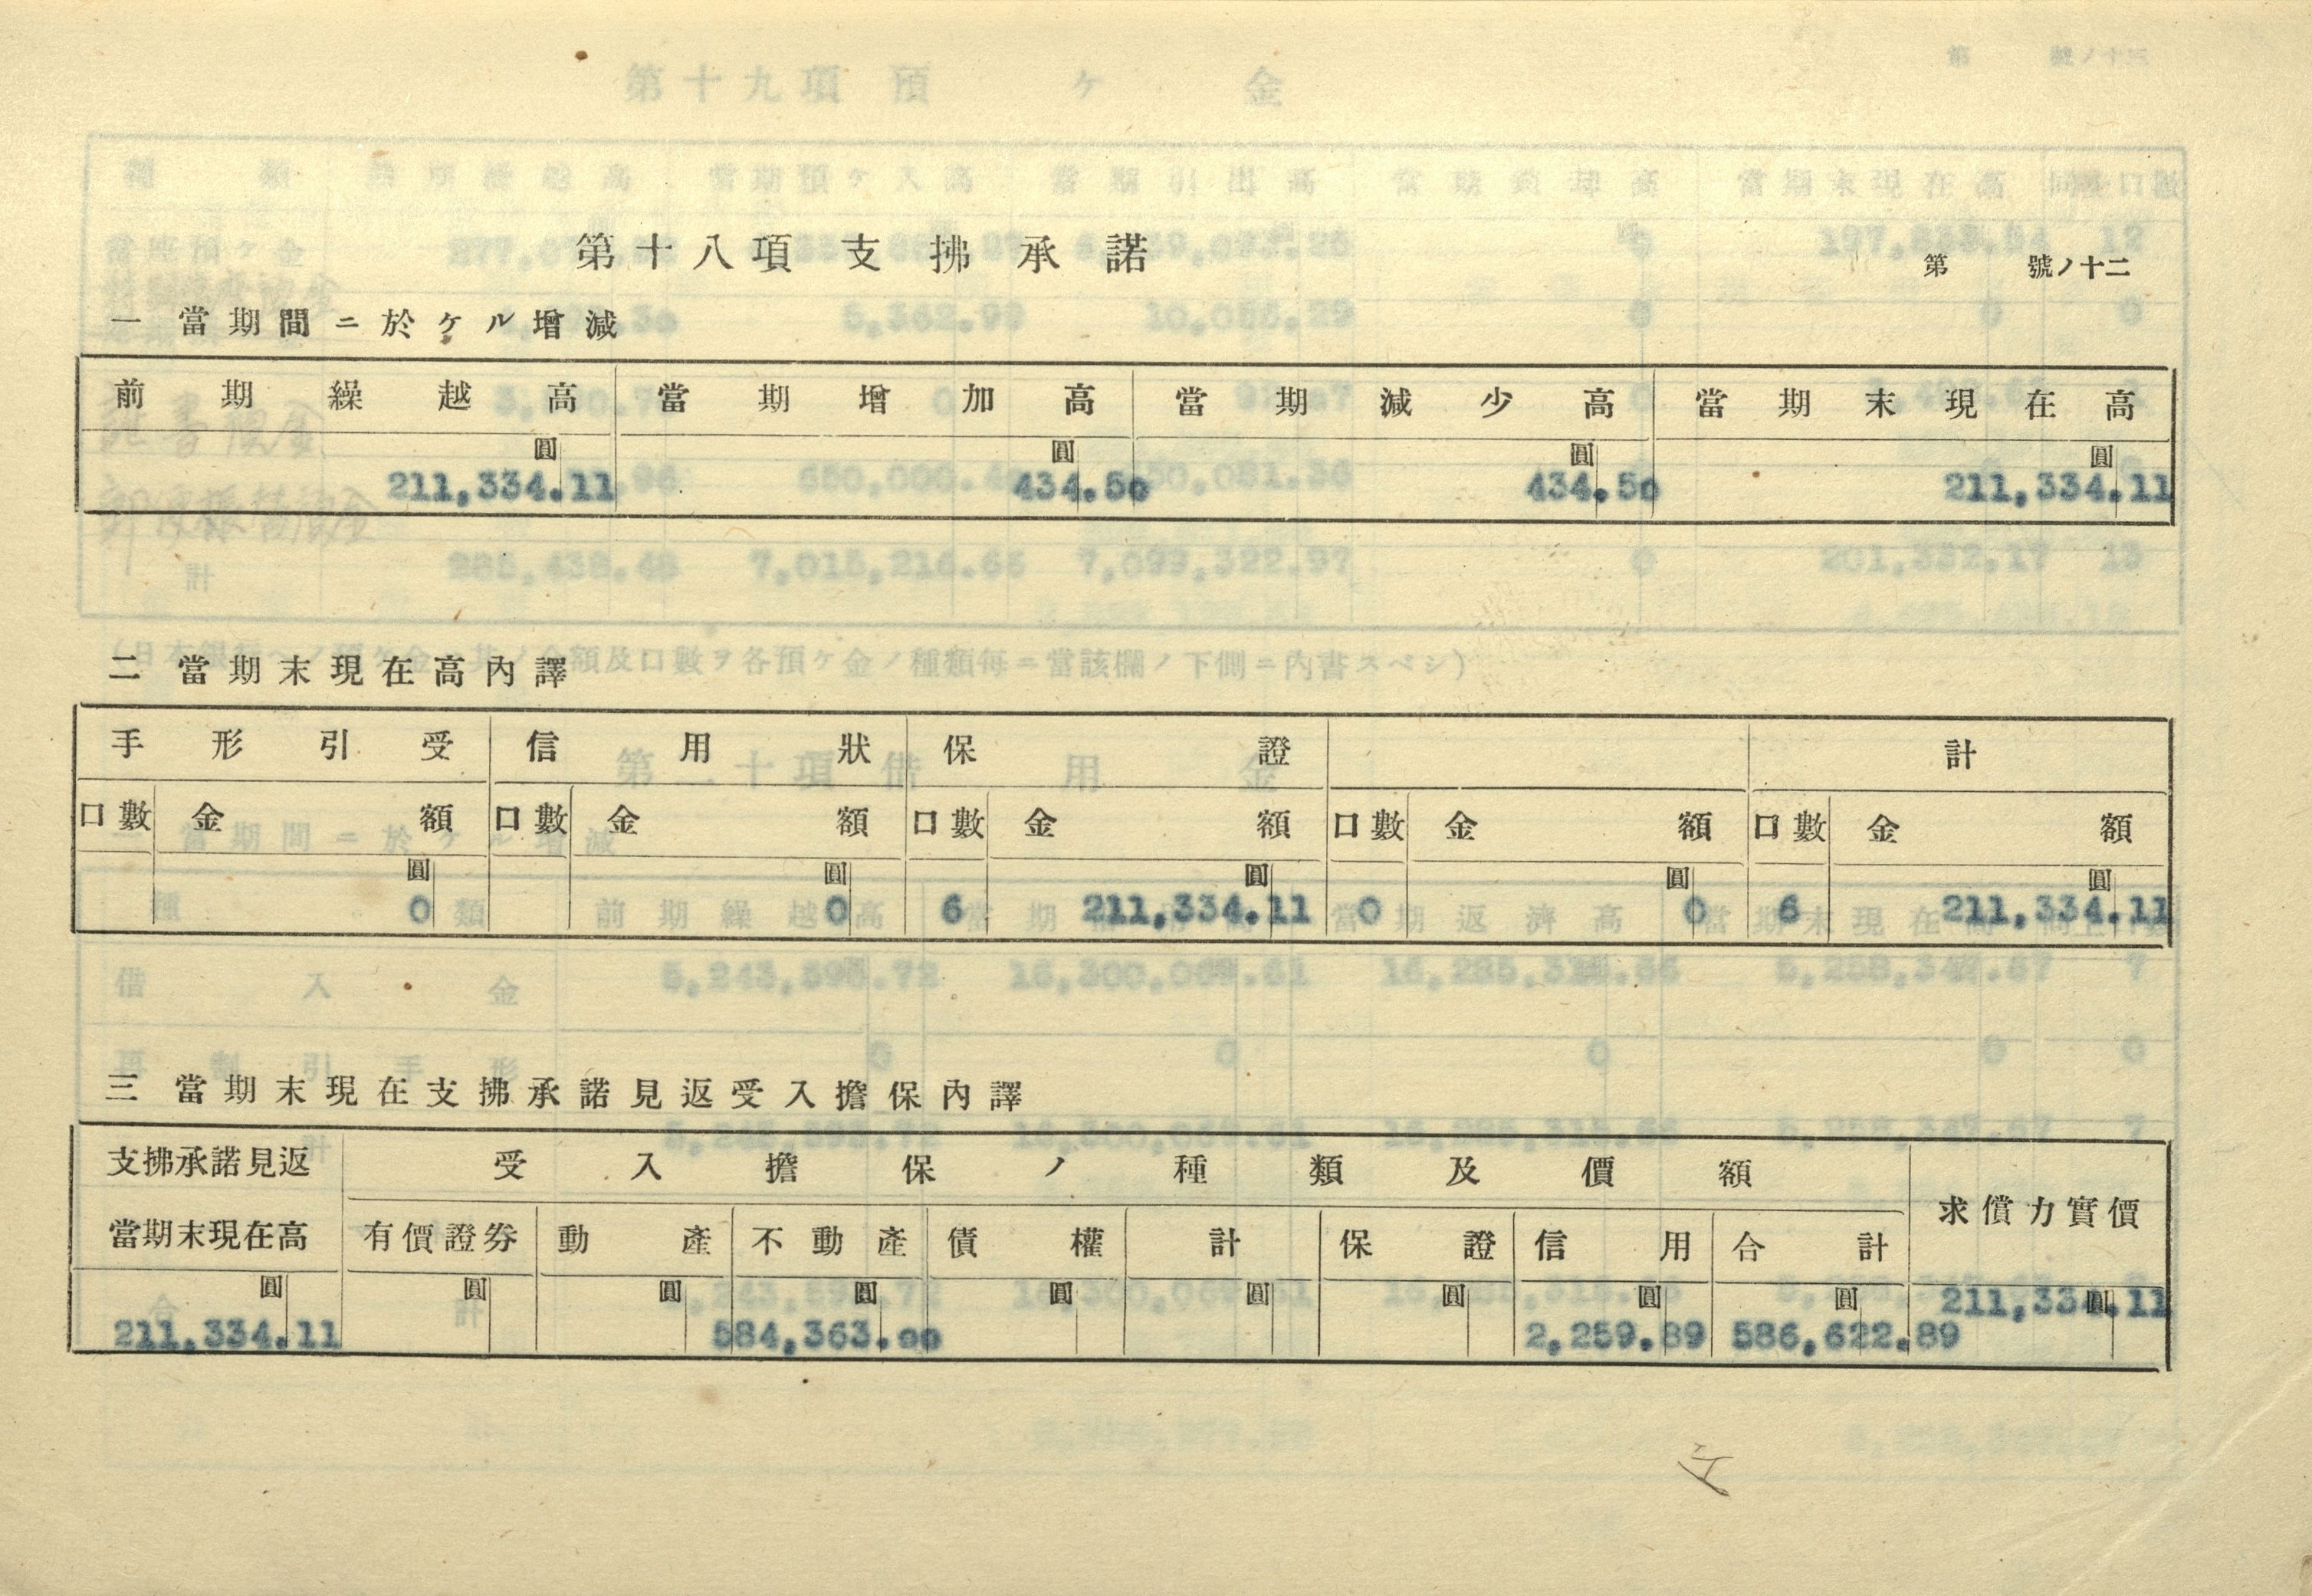 第十八項 支拂承諾
第 號ノ十二
一 當期間ニ於ケル增減
前期繰越高 當期增加高 當期減少高 當期末現在高
圓 圓 圓 圓
211,334.11 434.50 434.50 211,334.11
二 當期末現在高內譯
手形引受 信用狀 保證 計
口數 金額 口數 金額 口數 金額 口數 金額 口數 金額
圓 圓 圓 圓 圓
0 0 6 211,334.11 0 0 6 211,334.11
三 當期末現在支拂承諾見返受入擔保內譯
支拂承諾見返 受入擔保ノ種類及價額 求償力實價
當期末現在高 有價證券 動產 不動產 債權 計 保證 信用 合計
圓 圓 圓 圓 圓 圓 圓 圓 圓 圓
211,334.11 584,363.00 2,259.89 586,622.89 211,334.11